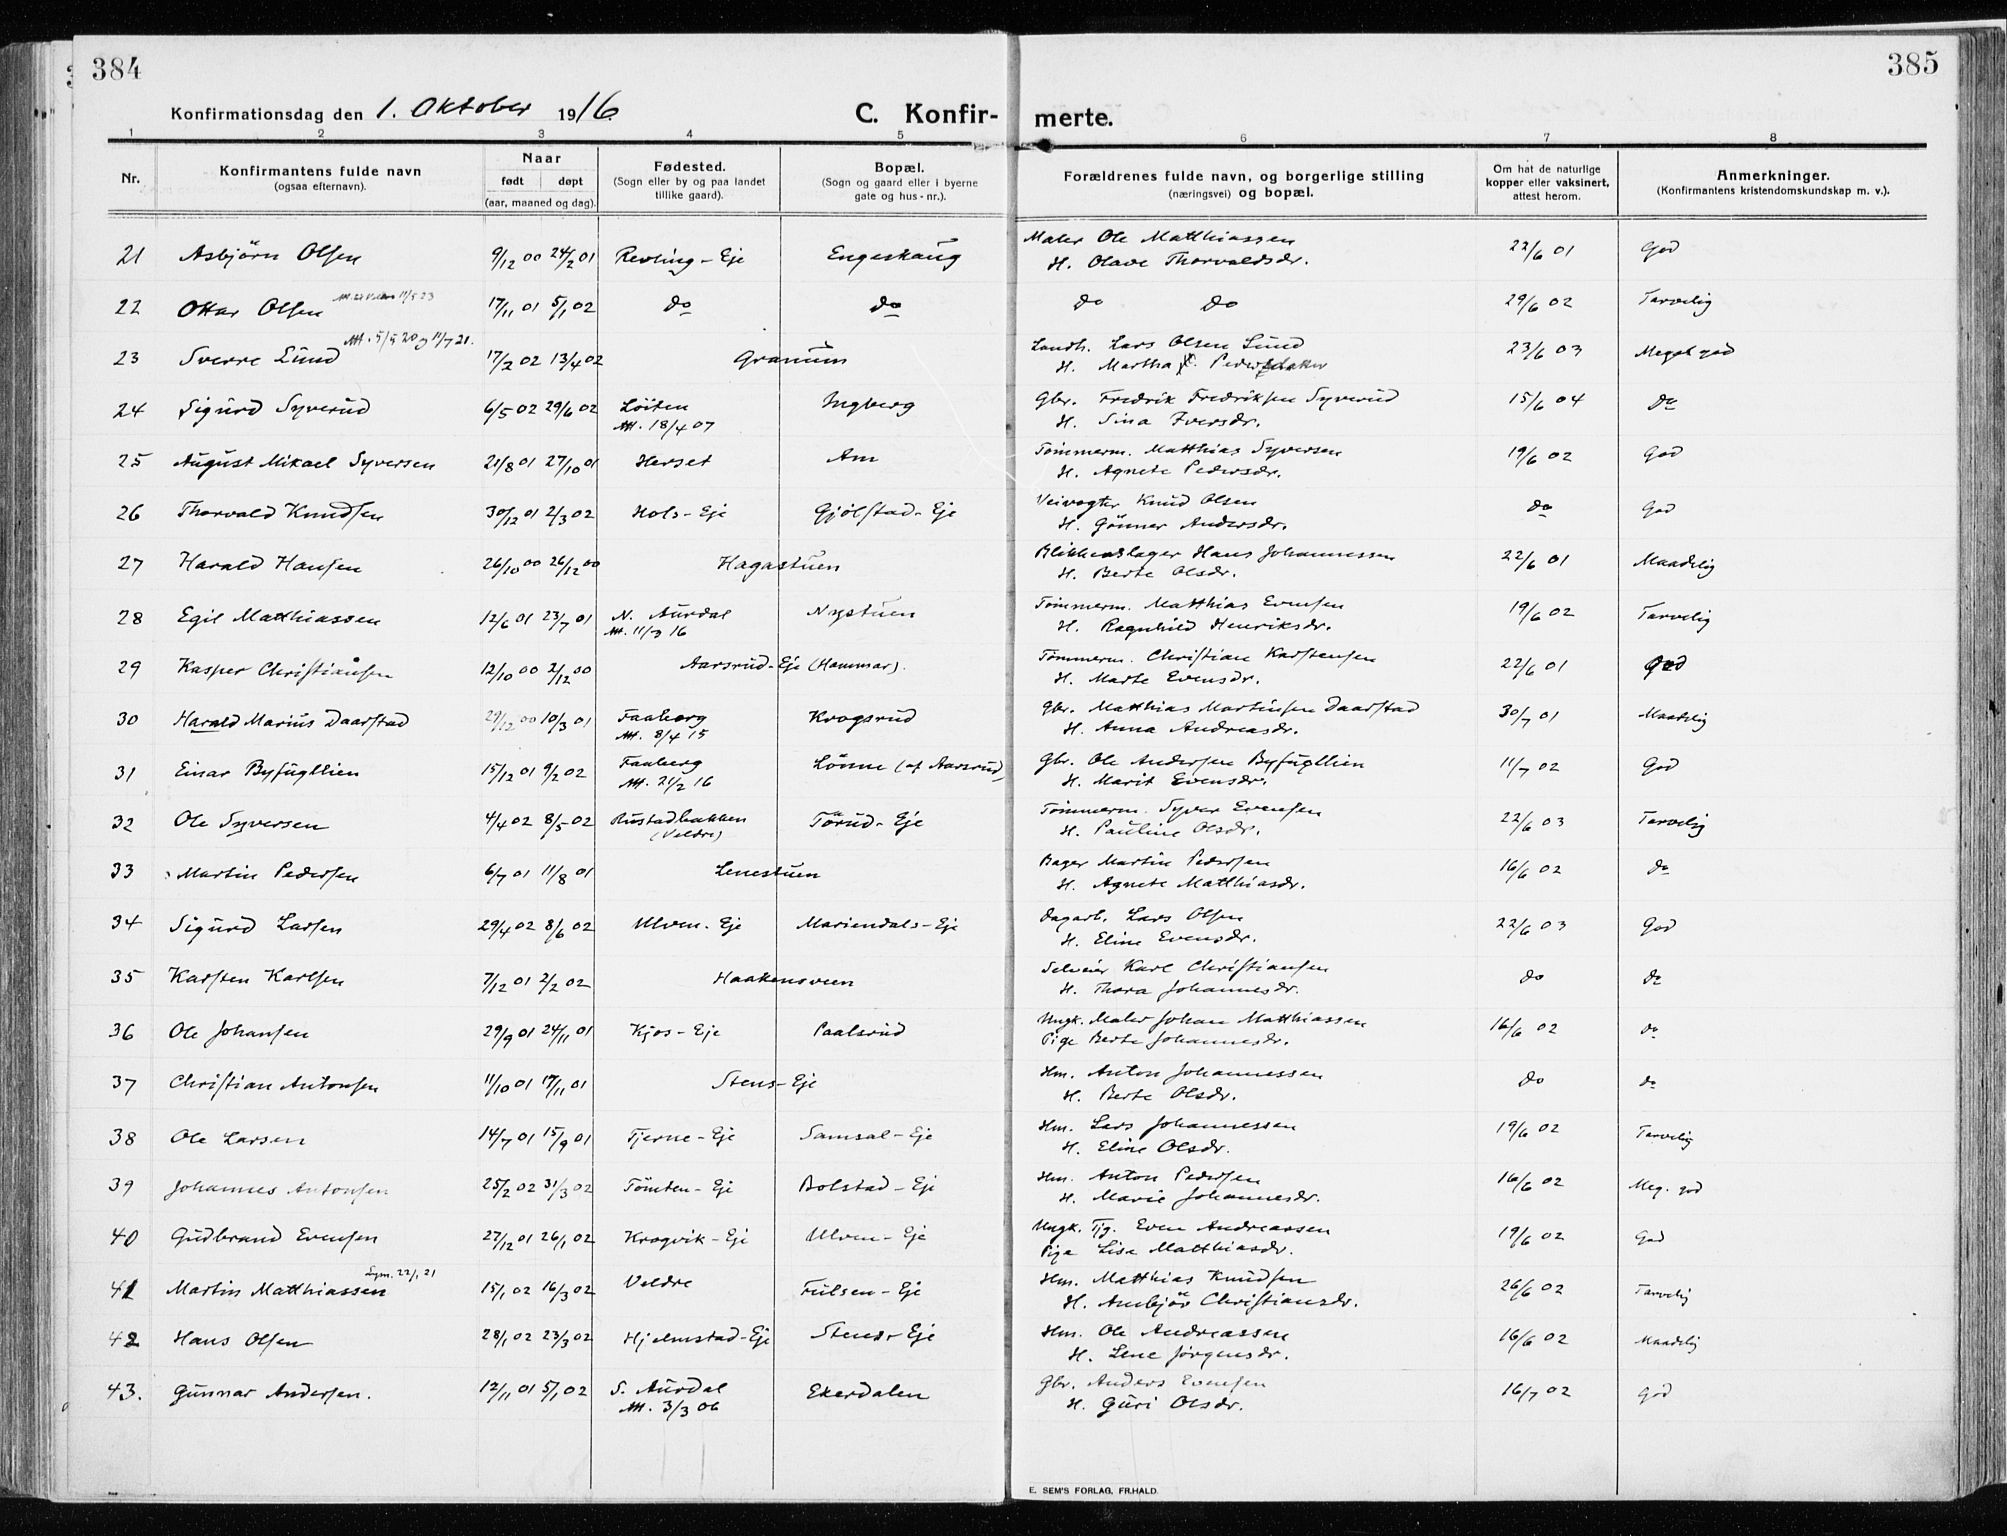 384
385
Konfirmationsdag den 1. Oktober 1916.
C. Konfir-
merte.
1 2 3 4 5 6 7 8
Nr.
Konfirmantens fulde navn
(ogsaa efternavn).
Naar
født døpt
(aar, maaned og dag).
Fødested.
(Sogn eller by og paa landet
tillike gaard).
Bopæl.
(Sogn og gaard eller i byerne
gate og hus-nr.).
Forældrenes fulde navn, og borgerlige stilling
(næringsvei) og bopæl.
Om hat de naturlige
kopper eller vaksinert,
attest herom.
Anmerkninger.
(Konfirmantens kristendomskundskap m. v.).
21 Asbjörn Olsen 9/12 00 24/2 01 Revling-Eje Engeshaug Maler Ole Matthiassen 22/6 01 God
H. Olave Thorvaldsdr.
22 Ottar Olsen 17/11 01 5/1 02 do do do do 29/6 02 Tarvelig
Att. 5/5 20 og 11/7 21.
23 Sverre Lund 17/2 02 13/4 02 Granum Landh. Lars Olsen Lund 23/6 03 Meget god
H. Martha
24 Sigurd Syverud 6/5 02 29/6 02 Löiten Ingberg Gbr. Fredrik Fredriksen Syverud 15/6 04 do
Att. 18/4 07 H. Sina Iversdr.
25 August Mikael Syversen 21/8 01 27/10 01 Herset Arn Tömmerm. Matthias Syversen 19/6 02 God
H. Agnete Pedersdr.
26 Thorvald Knudsen 30/12 01 2/3 02 Hols-Eje Gjölstad-Eje Veivogter Knud Olsen do God
H. Gönner Andersdr.
27 Harald Hansen 26/10 00 26/12 00 Hagastuen Blikkenslager Hans Johannessen 22/6 01 Maadelig
H. Berte Olsdr.
28 Egil Matthiassen 12/6 01 23/7 01 N. Aurdal Nystuen Tömmerm. Matthias Evensen 19/6 02 Tarvelig
Att. 11/3 16 H. Ragnhild Henriksdr.
29 Kasper Christiansen 12/10 00 2/12 00 Aarsrud-Eje (Hammar). Tömmerm. Christian Karstensen 22/6 01 God
H. Marte Evensdr.
30 Harald Marius Daarstad 29/12 00 10/3 01 Faaberg Krogsrud Gbr. Matthias Martinsen Daarstad 30/7 01 Maadelig
Att. 8/4 15 H. Anna Andreasdr.
31 Einar Byfugllien 15/12 01 9/2 02 Faaberg Lönne (af Aarsrud) Gbr. Ole Andersen Byfugllien 11/7 02 God
Att. 21/2 16 H. Marit Evensdr.
32 Ole Syversen 4/4 02 8/5 02 Rustadbakken Törud-Eje Tömmerm. Syver Evensen 22/6 03 Tarvelig
(Veldre) H. Pauline Olsdr.
33 Martin Pedersen 6/7 01 11/8 01 Lenestuen Bager Martin Pedersen 16/6 02 do
H. Agnete Matthiasdr.
34 Sigurd Larsen 29/4 02 8/6 02 Ulven-Eje Mariendals-Eje Dagarb. Lars Olsen 22/6 03 God
H. Eline Evensdr.
35 Karsten Karlsen 7/12 01 2/2 02 Haakensveen Selveier Karl Christiansen do do
H. Thora Johannesdr.
36 Ole Johansen 29/9 01 24/11 01 Kjos-Eje Paalsrud Ungk. Maler Johan Matthiassen 16/6 02 do
Pige Berte Johannesdr.
37 Christian Antonsen 11/10 01 17/11 01 Stens-Eje Hm. Anton Johannessen do do
H. Berte Olsdr.
38 Ole Larsen 14/7 01 15/9 01 Tjerne-Eje Samsal-Eje Hm. Lars Johannessen 19/6 02 Tarvelig
H. Eline Olsdr.
39 Johannes Antonsen 25/2 02 31/3 02 Tömten-Eje Bolstad-Eje Hm. Anton Pedersen 16/6 02 Meg. god
H. Marie Johannesdr.
40 Gudbrand Evensen 27/12 01 26/1 02 Krogvik-Eje Ulven-Eje Ungk. Tjg. Even Andreassen 19/6 02 God
Pige Lise Matthiasdr.
22/1 21
41 Martin Matthiassen 15/1 02 16/3 02 Veldre Fulsen-Eje Hm. Matthias Knudsen 26/6 02 Tarvelig
H. Ambjör Christiansdr.
42 Hans Olsen 28/1 02 23/3 02 Hjelmstad-Eje Stens-Eje Hm. Ole Andreassen 16/6 02 Maadelig
H. Lene Jörgensdr.
43. Gunnar Andersen. 12/11 01 5/1 02 S. Aurdal Ekerdalen Gbr. Anders Evensen 16/7 02 God
Att. 3/3 06 H. Guri Olsdr.
E. SEM'S FORLAG, FR.HALD.